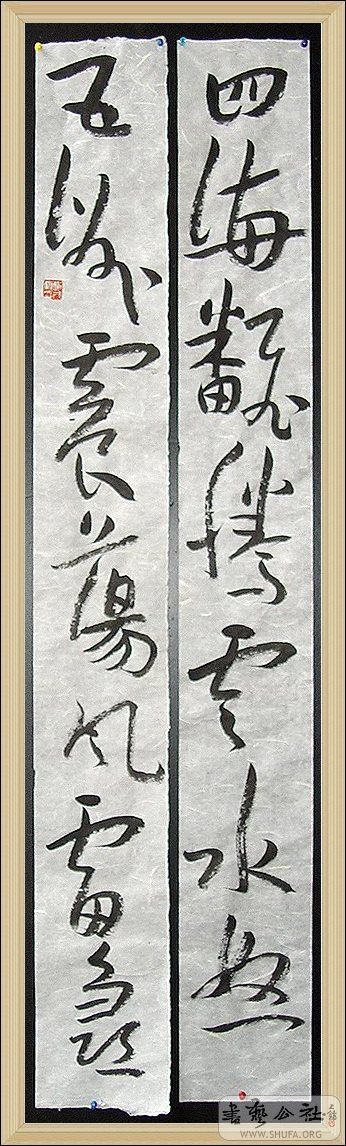 四海飜騰雲水怒
五洲震蕩風雷急
書藝公社
WWW.SHUFA.ORG